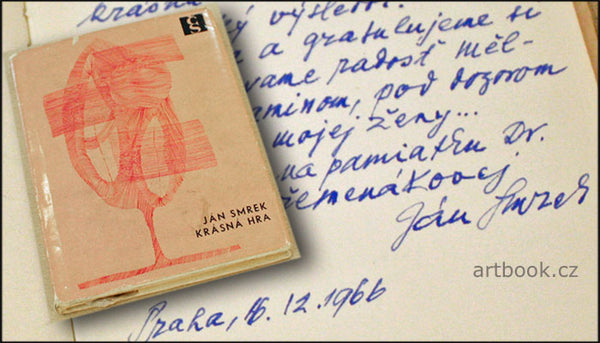 JÁN SMREK
KRÁSNA HRA
krásna
ný výsled
a gratulujeme si
vame radosť měl-
aminom, pod dozorom
mojej ženy...
na pamiatku Dr.
Ján Smrek
Praha, 16.12.1966
artbook.cz